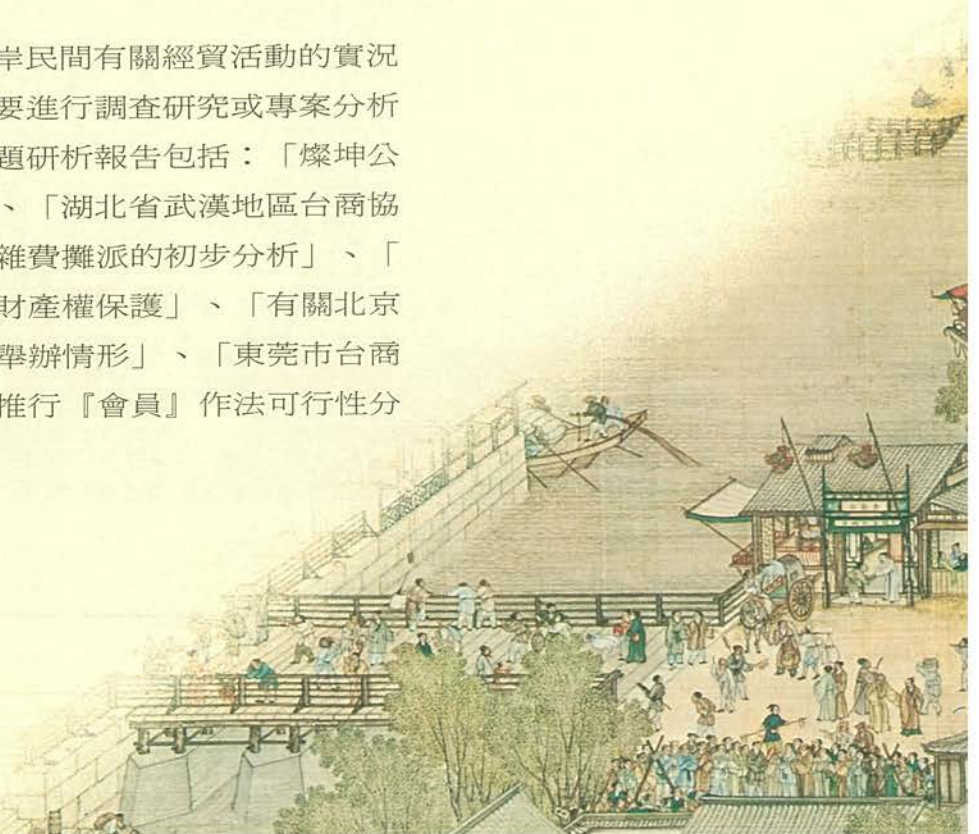 岸民間有關經貿活動的實況
要進行調查研究或專案分析
題研析報告包括：「燦坤公
、「湖北省武漢地區台商協
雜費攤派的初步分析」、「
財產權保護」、「有關北京
舉辦情形」、「東莞市台商
推行『會員』作法可行性分